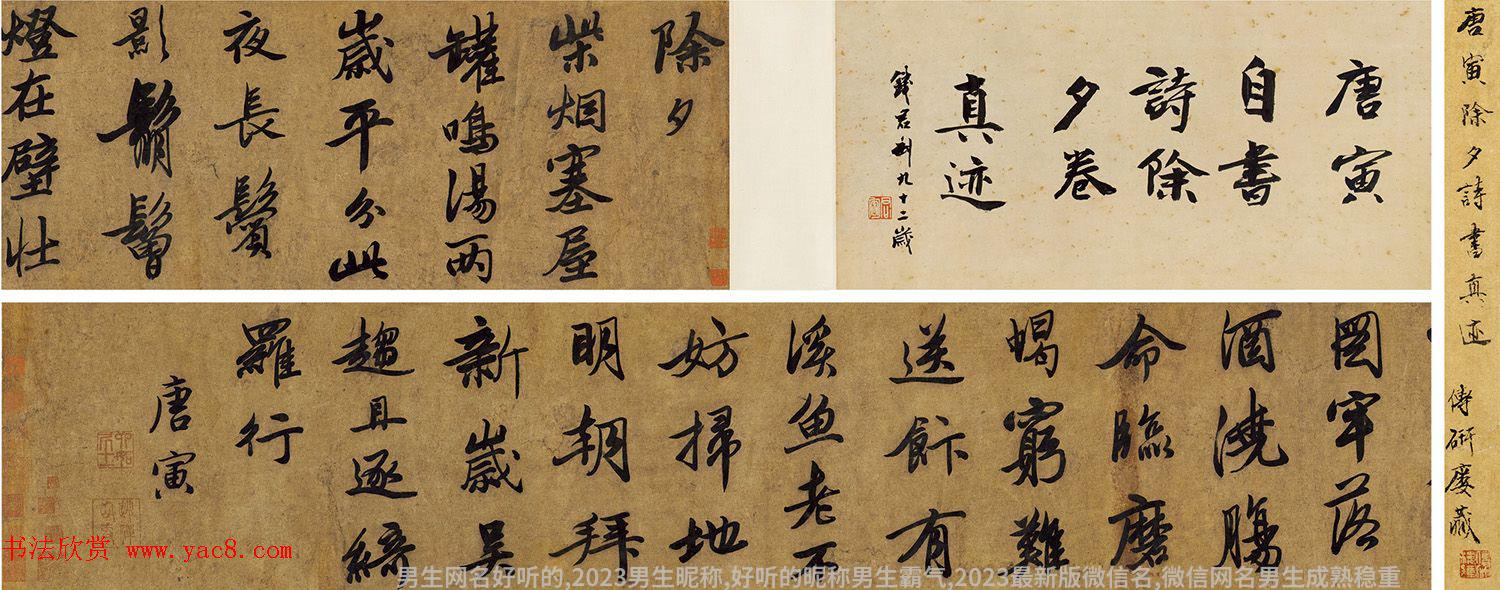 唐寅除夕詩書真迹 傅硏廔藏
唐寅
自書
詩除
夕卷
真迹
錢君匋九十二歲
除夕
柴烟塞屋
罐鳴湯两
嵗平分此
夜長鬢
影鬅鬙
燈在壁壮
圖牢落
酒澆腸
命臨磨
蝎窮難
送飰有
溪魚老不
妨掃地
明朝拜
新嵗呈
趨且逐綺
羅行
唐寅
书法欣赏 www.yac8.com
男生网名好听的,2023男生昵称,好听的昵称男生霸气,2023最新版微信名,微信网名男生成熟稳重